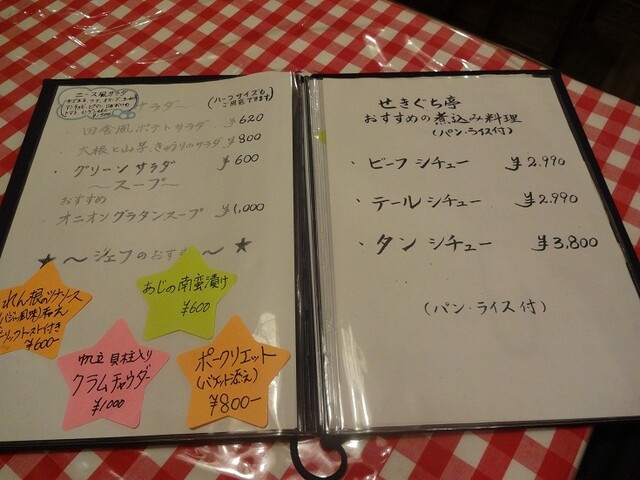 ニース風サラダ
サラダ
(ハーフサイズも
ご用意できます)
田舎風ポテトサラダ ¥620
大根と山芋、きゅうりのサラダ ¥800
・グリーンサラダ ¥600
〜スープ〜
おすすめ
オニオングラタンスープ ¥1,000
★〜シェフのおすすめ〜★
れん根のツナソース
添え
トースト付き
¥600-
あじの南蛮漬け
¥600
帆立貝柱入り
クラムチャウダー
¥1000
ポークリエット
(バゲット添え)
¥800-
せきぐち亭
おすすめの煮込み料理
(パン・ライス付)
・ビーフシチュー ¥2,990
・テールシチュー ¥2,990
・タンシチュー ¥3,800
(パン・ライス付)